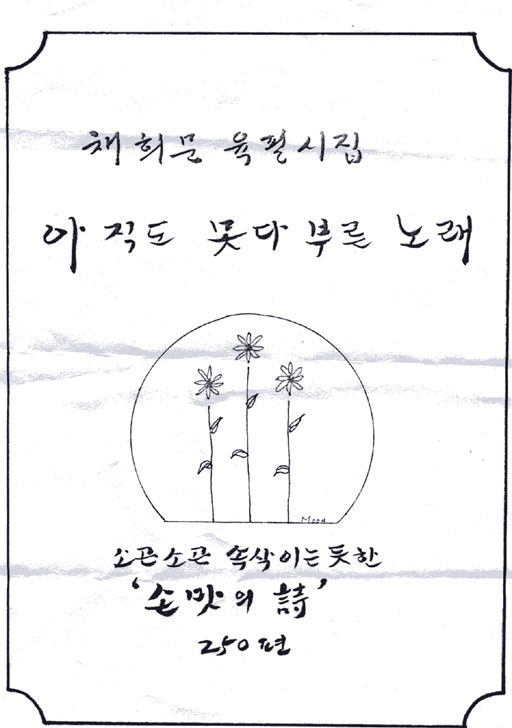 채희문 육필시집
아직도 못다 부른 노래
Moon
소곤소곤 속삭이는 듯한
'손맛의 詩'
250편